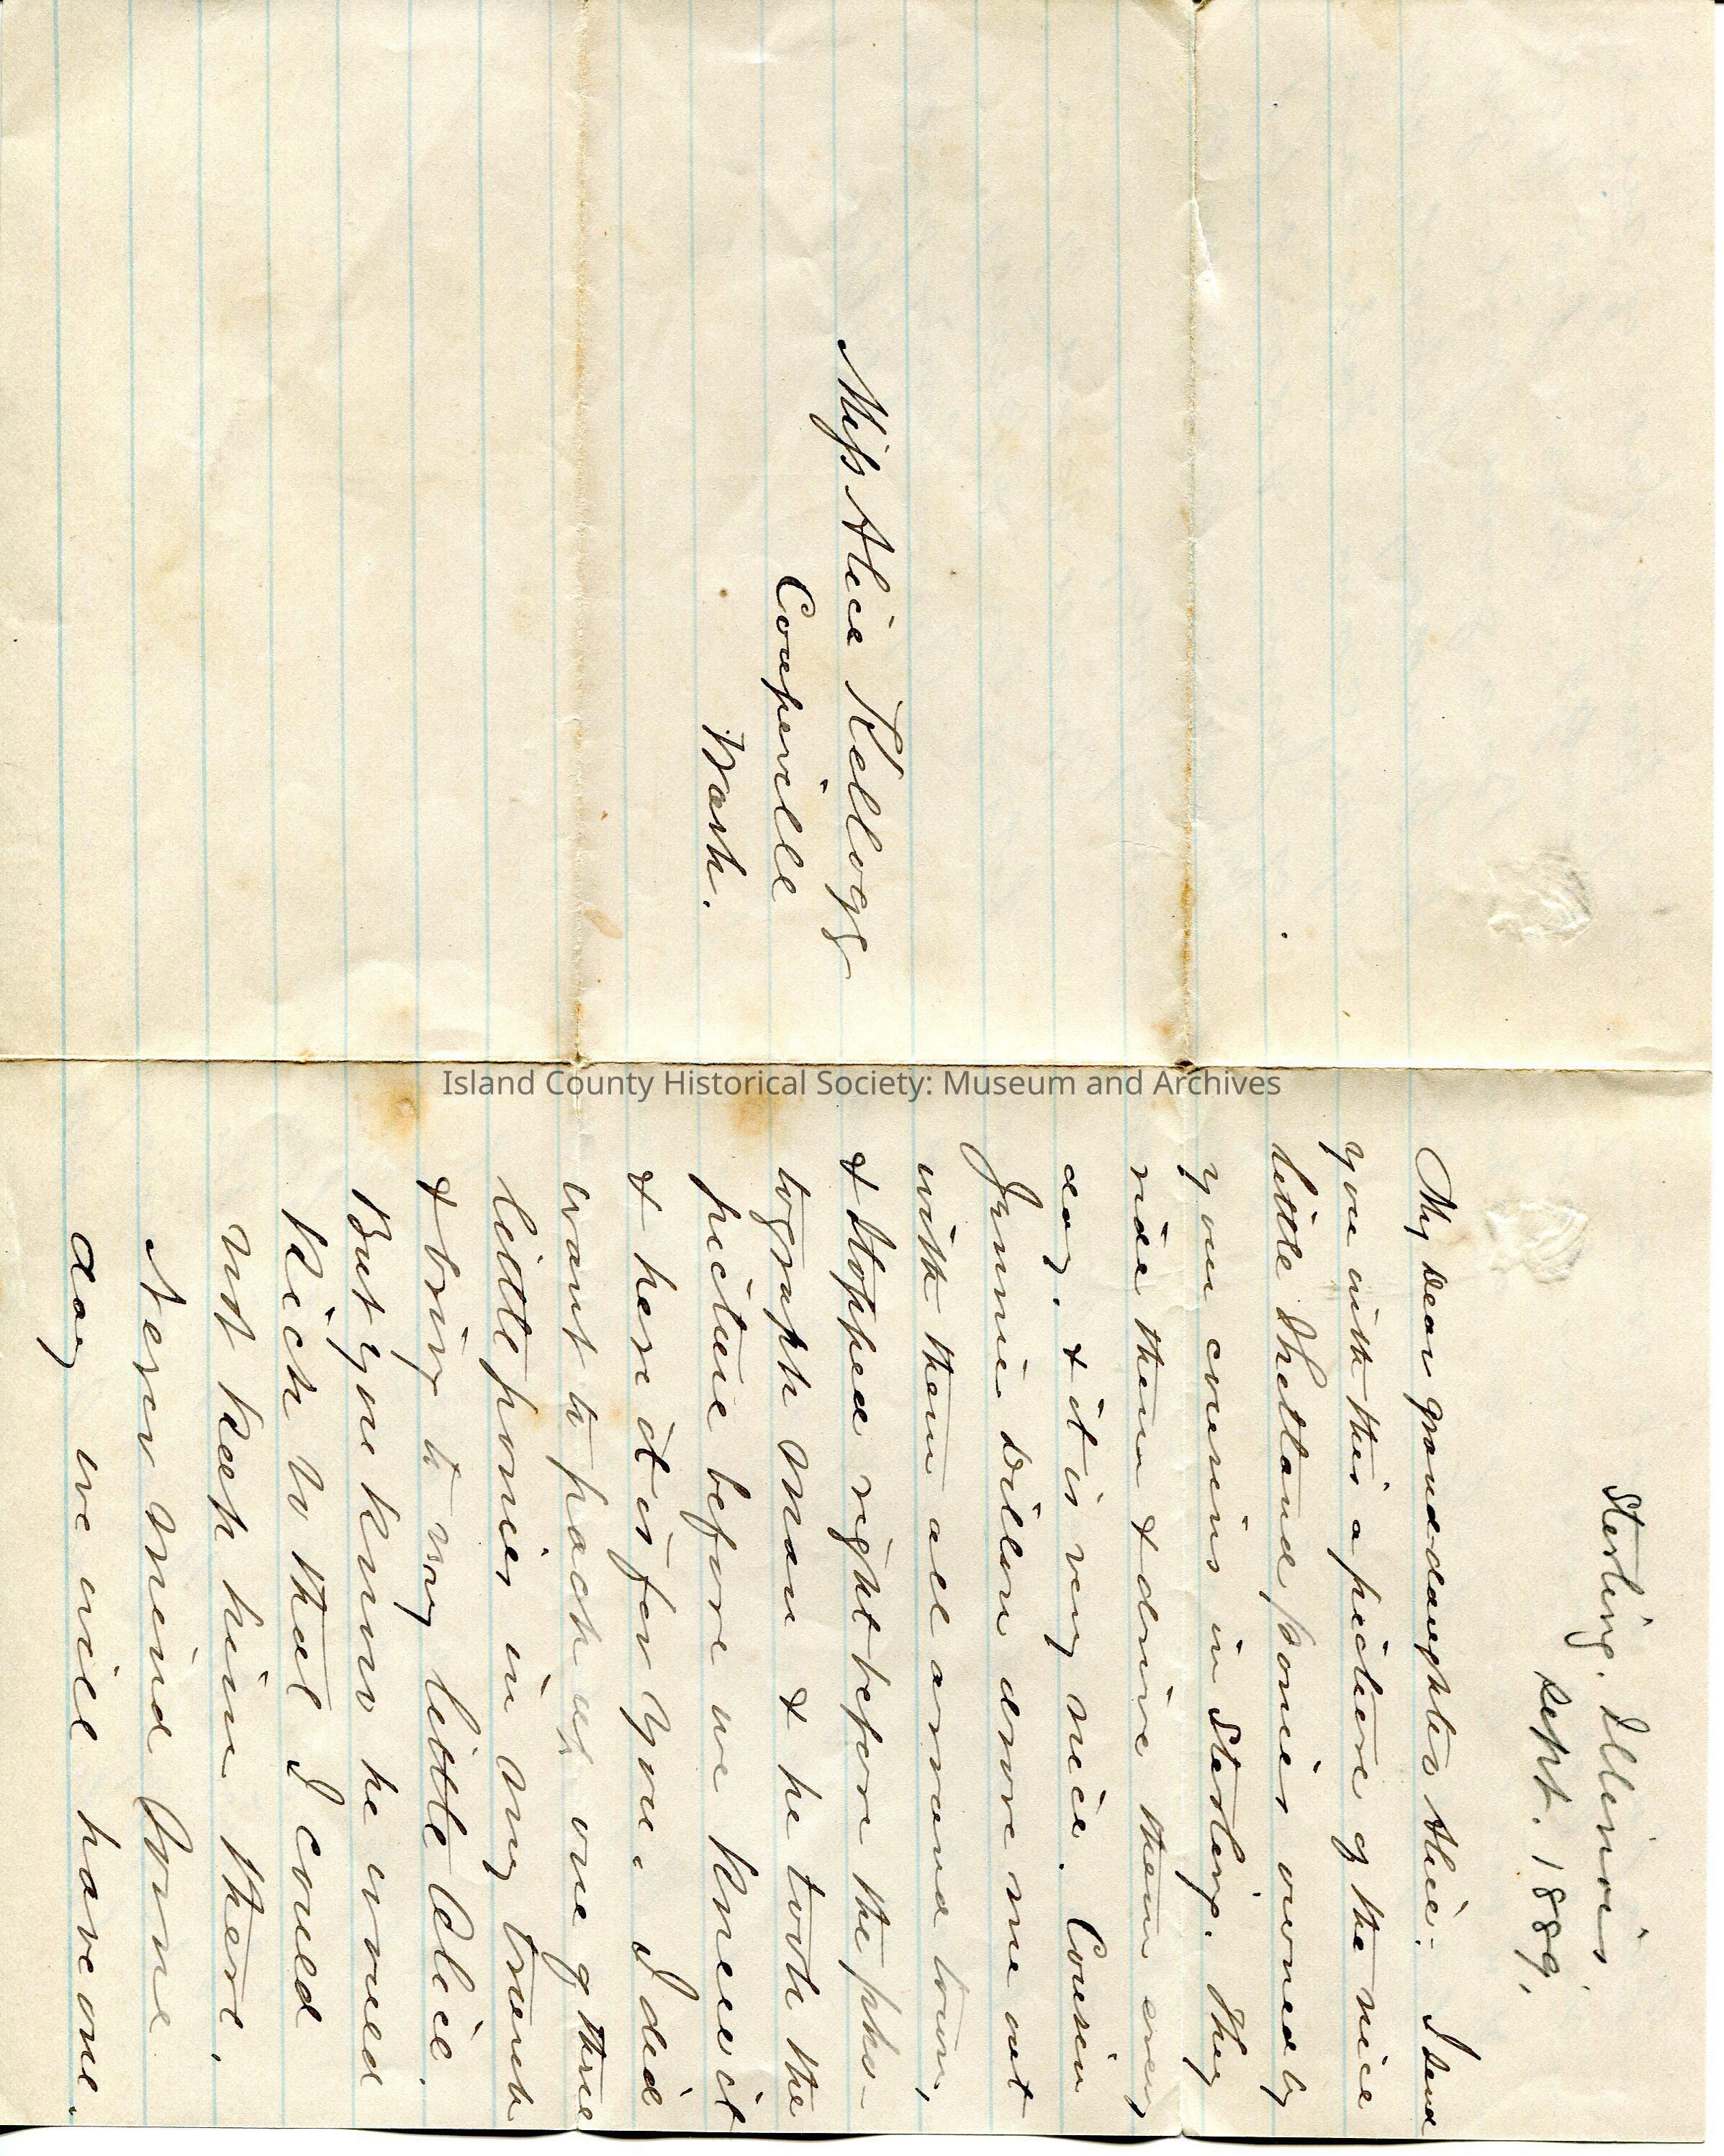 Sterling, Illinois
Sept. 1889,
My Dear granddaughter Alice:- I send
you with this a picture of the nice
little Shetland ponies owned by
your cousins in Sterling. They
ride them & drive them every
day, & it is very nice. Cousin
Jennie Dillon drove me out
with them all around town,
& stopped right before the pho-
tograph man & he took the
picture before we knew it
& here it is for you. I did
want to pack up one of these
little ponies in my trunk
& bring to my little Alice.
But you know he would
kick so that I could
not keep him there.
Never mind some
day we will have one.
Miss Alice Kellogg
Coupeville
Wash.
Island County Historical Society: Museum and Archives